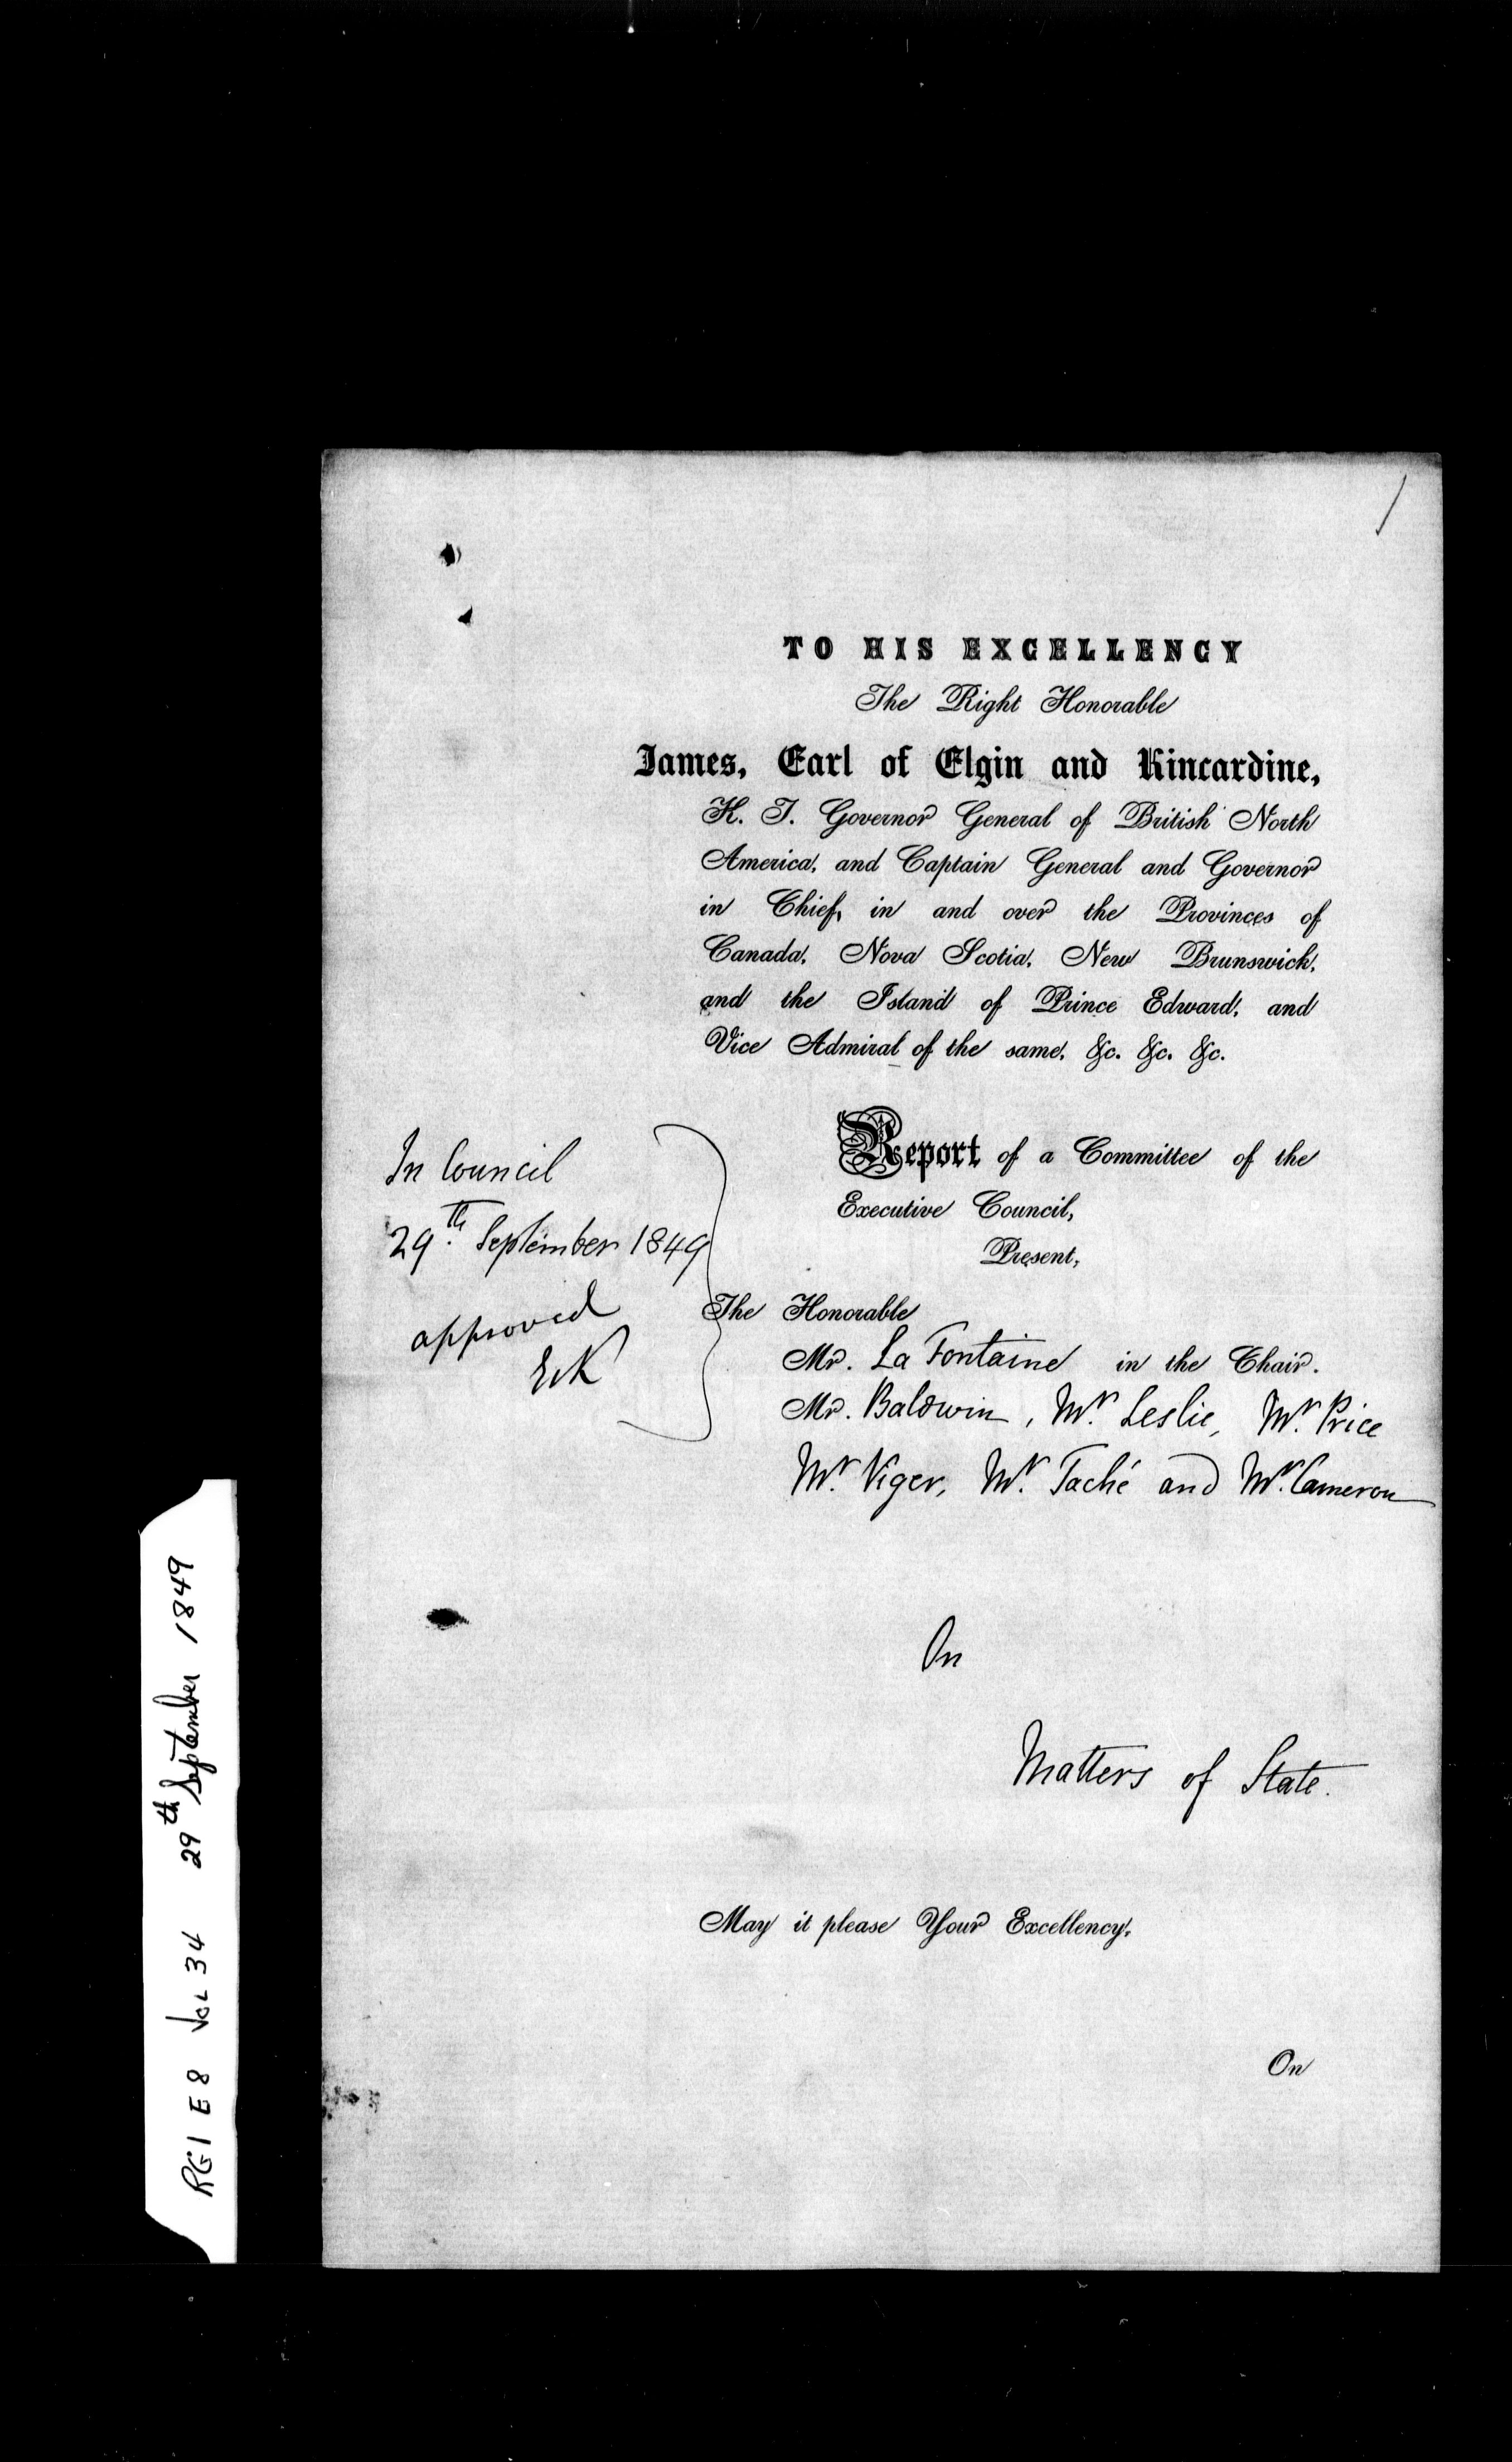 /
TO HIS EXCELLENCY
The Right Honorable
James, Earl of Elgin and Kincardine,
K. T. Governor General of British North
America, and Captain General and Governor
in Chief, in and over the Provinces of
Canada, Nova Scotia, New Brunswick,
and the Island of Prince Edward, and
Vice Admiral of the same, &c. &c. &c.
Report of a Committee of the
Executive Council,
Present,
In Council
29th September 1849
approved
E&K
The Honorable
Mr. La Fontaine in the Chair.
Mr. Baldwin, Mr. Leslie, Mr. Price
Mr. Viger, Mr. Taché and Mr. Cameron
On
Matters of State.
May it please Your Excellency,
On
RG1 E8 Vol 34 29th September 1849